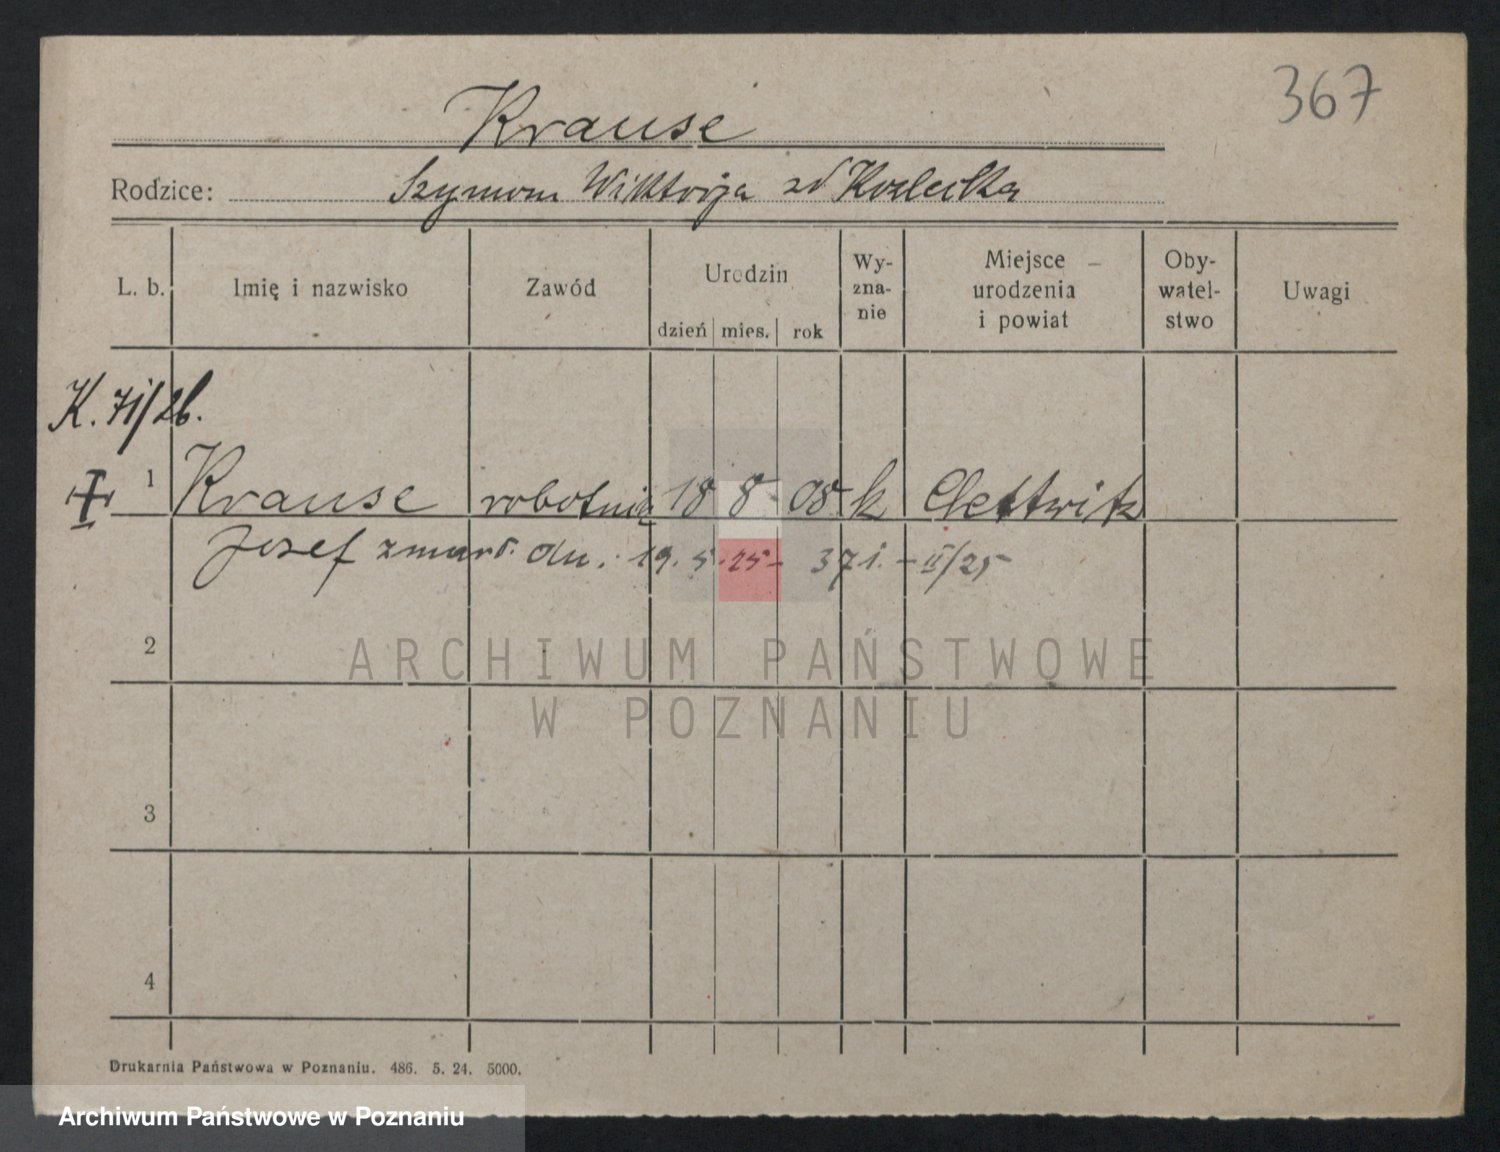 367
Krause
Rodzice: Szymon Wiktorja zd Kozlecka
L. b. Imię i nazwisko Zawód Urodzin dzień mies. rok Wy- zna- nie Miejsce urodzenia i powiat Oby- watel- stwo Uwagi
K. 71/26.
1 Krause robotnik 18 8 08 k
Josef zmarł. dn. 19. 5. 25 - 371. - II/25
2
ARCHIWUM PAŃSTWOWE
W POZNANIU
3
4
Drukarnia Państwowa w Poznaniu. 486. 5. 24. 5000.
Archiwum Państwowe w Poznaniu